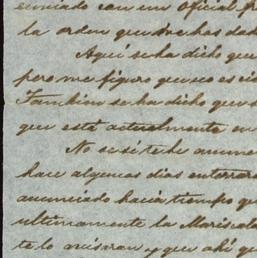 enviado con un Oficial
la orden que me has dad
Aquí se ha dicho que
pero me figuro que
Tambien se ha dicho que
que está actualmente en
No se si te he anunc
hace algunos dias enterrar
anunciado hacia tiempo qu
ultimamente la Mariscala
te lo avisaran y que ahí qu